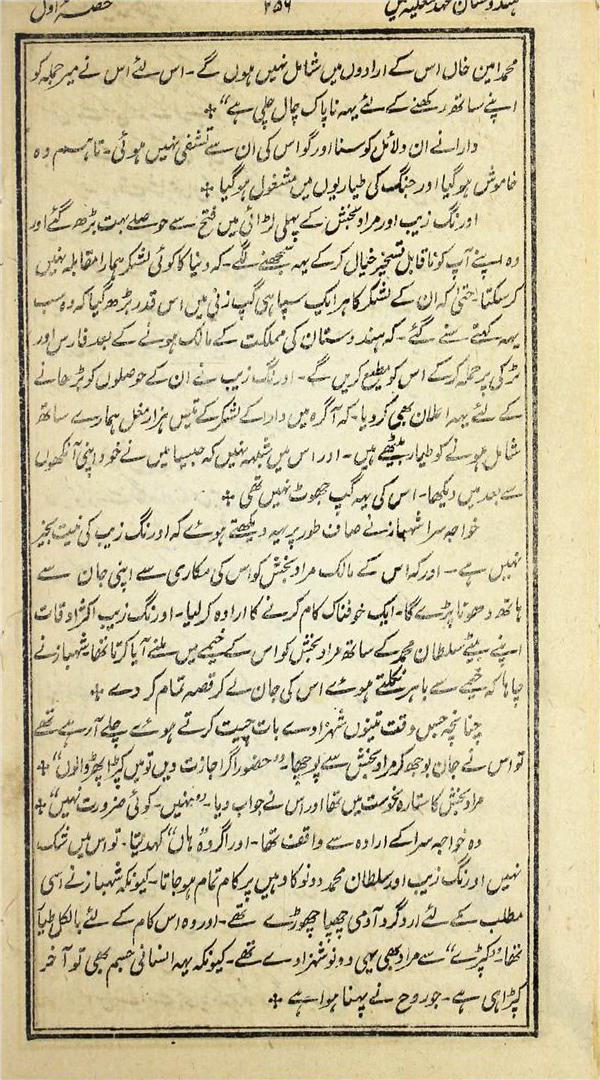 ہندوستان عہد مغلیہ میں ۲۵۶ حصہ اول
محمد امین خاں اس کے ارادوں میں شامل نہیں ہوں گے۔ اس لئے اس نے میر جملہ کو
اپنے ساتھ رکھنے کے لئے یہہ ناپاک چال چلی ہے“ ÷
دارا نے ان دلائل کو سنا اور گو اس کی ان سے تشفی نہیں ہوئی۔ تاہم وہ
خاموش ہو گیا اور جنگ کی طیاریوں میں مشغول ہو گیا ÷
اورنگ زیب اور مراد بخش کے پہلی لڑائی میں فتح سے حوصلے بہت بڑھ گئے اور
وہ اپنے آپ کو ناقابل تسخیر خیال کر کے یہہ سمجھنے لگے۔ کہ دنیا کا کوئی لشکر ہمارا مقابلہ نہیں
کر سکتا حتیٰ کہ ان کے لشکر کا ہر ایک سپاہی گپ زنی میں اس قدر بڑھ گیا کہ وہ سب
یہہ کہتے سنے گئے۔ کہ ہندوستان کی مملکت کے مالک ہونے کے بعد فارس اور
ٹرکی پر حملہ کر کے اس کو مطیع کریں گے۔ اورنگ زیب نے ان کے حوصلوں کو بڑھانے
کے لئے یہہ اعلان بھی کر دیا۔ کہ آگرہ میں دارا کے لشکر کے تیس ہزار مغل ہمارے ساتھ
شامل ہونے کو طیار بیٹھے ہیں۔ اور اس میں شبہہ نہیں کہ جیسا میں نے خود اپنی آنکھوں
سے بعد میں دیکھا۔ اس کی یہہ گپ جھوٹ نہیں تھی ÷
خواجہ سرا شہباز نے صاف طور پر یہہ دیکھتے ہوئے کہ اورنگ زیب کی نیت بخیر
نہیں ہے۔ اور کہ اس کے مالک مراد بخش کو اس کی مکاری سے اپنی جان سے
ہاتھ دھونا پڑے گا۔ ایک خوفناک کام کرنے کا ارادہ کر لیا۔ اورنگ زیب اکثر اوقات
اپنے بیٹے سلطان محمد کے ساتھ مراد بخش کو اس کے خیمے میں ملنے آیا کرتا تھا۔ شہباز نے
چاہا کہ خیمے سے باہر نکلتے ہوئے اس کی جان لے کر قصہ تمام کر دے ÷
چنانچہ جس وقت تینوں شہزادے بات چیت کرتے ہوئے چلے آ رہے تھے
تو اس نے جان بوجھ کر مراد بخش سے پوچھا۔ ”حضور اگر اجازت دیں تو میں کپڑا پھڑوالوں“ ÷
مراد بخش کا ستارہ نحوست میں تھا اور اس نے جواب دیا۔ ”نہیں۔ کوئی ضرورت نہیں“ ÷
وہ خواجہ سرا کے ارادہ سے واقف تھا۔ اور اگر وہ ”ہاں“ کہدیتا۔ تو اس میں شک
نہیں اورنگ زیب اور سلطان محمد دونو کا وہیں پر کام تمام ہو جاتا۔ کیونکہ شہباز نے اسی
مطلب کے لئے ارد گرد آدمی چھپا چھوڑے تھے۔ اور وہ اس کام کے لئے بالکل طیار
تھا۔ ”کپڑے“ سے مراد بھی یہی دونو شہزادے تھے۔ کیونکہ یہہ انسانی جسم بھی تو آخر
کپڑا ہی ہے۔ جو روح نے پہنا ہوا ہے ÷